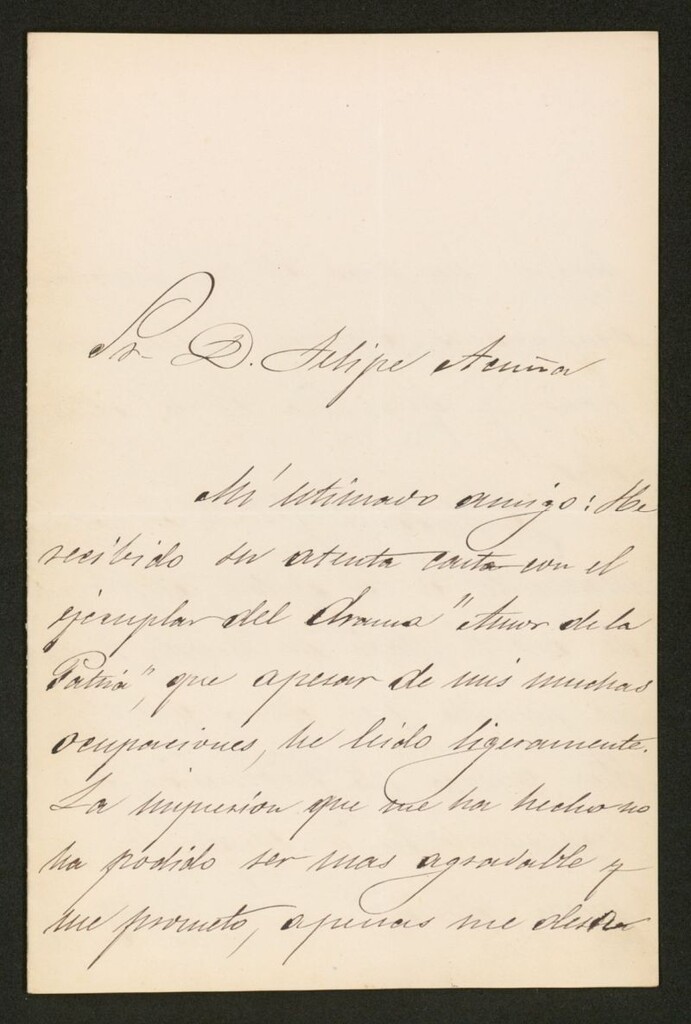 Sr. D. Felipe Acuña
Mi estimado amigo: He
recibido su atenta carta con el
ejemplar del drama "Amor de la
Patria", que apesar de mis muchas
ocupaciones, he leido ligeramente.
La impresion que me ha hecho no
ha podido ser mas agradable y
me prometo, apenas me